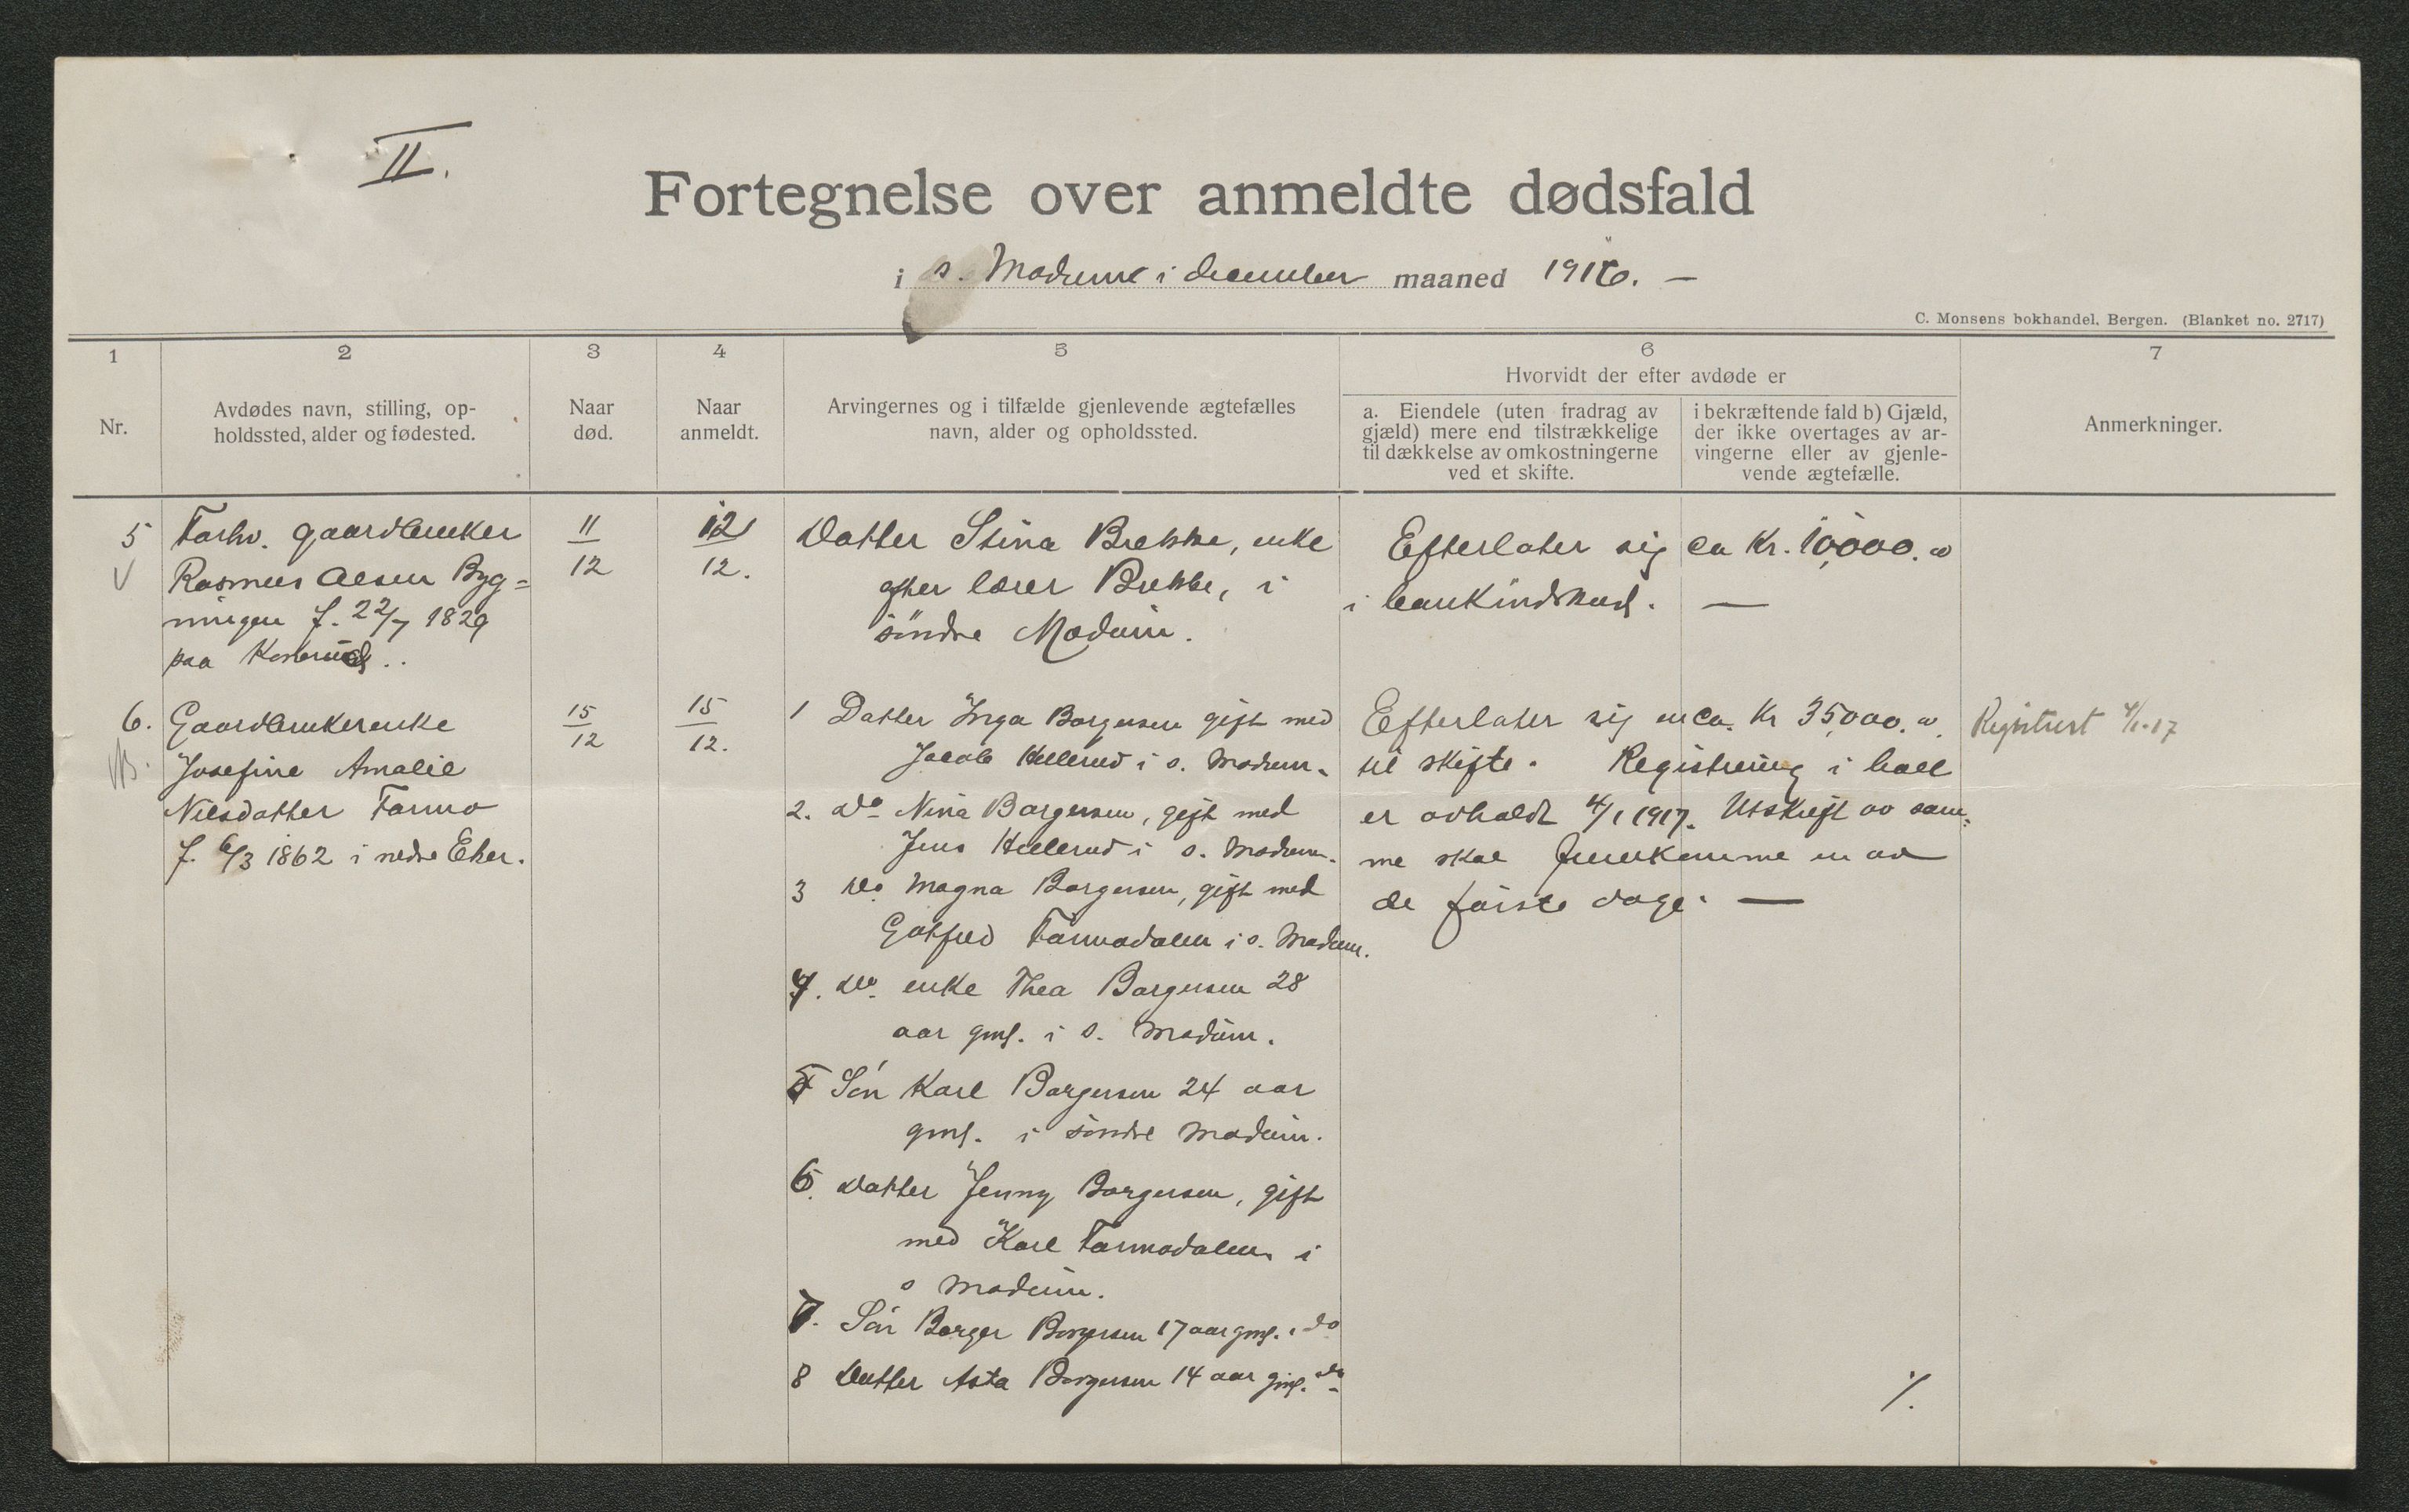 II.
Fortegnelse over anmeldte dødsfald
i s. Modum i december maaned 1916. —
C. Monsens bokhandel, Bergen. (Blanket no. 2717)
1
Nr.
2
Avdødes navn, stilling, op-
holdssted, alder og fødested.
3
Naar
død.
4
Naar
anmeldt.
5
Arvingernes og i tilfælde gjenlevende ægtefælles
navn, alder og opholdssted.
6
Hvorvidt der efter avdøde er
a. Eiendele (uten fradrag av
gjæld) mere end tilstrækkelige
til dækkelse av omkostningerne
ved et skifte.
i bekræftende fald b) Gjæld,
der ikke overtages av ar-
vingerne eller av gjenle-
vende ægtefælle.
7
Anmerkninger.
5
Forhv. gaardbruker
Rasmus Olsen Byg=
ningen f. 22/7 1829
paa Konerud..
11/12
12/12.
Datter Stina Brekke, enke
efter lærer Brekke, i
söndre Modum.
Efterlater sig ca Kr. 10,000.
i bankindskud. —
6.
Gaardbrukerenke
Josefine Amalie
Nilsdatter Formo
f. 6/3 1862 i nedre Eker.
15/12
15/12.
1 Datter Inga Borgersen gift med
Jacob Hellerud i s. Modum.
2. Do Nina Borgersen, gift med
Jens Hellerud i s. Modum.
3 Do. Magna Borgersen, gift med
Gotfred Formodalen i s. Modum.
4. Do. enke Thea Borgersen 28
aar gml. i s. Modum.
5 Sön Karl Borgersen 24 aar
gml. i söndre Modum.
6. Datter Jenny Borgersen, gift
med Karl Formodalen i
s Modum.
7. Sön Borger Borgersen 17 aar gml. i do
8 Datter Asta Borgersen 14 aar gml. do
Efterlater sig en ca. Kr 35,000.
til skifte. Registrering i boet
er avholdt 4/1 1917. Utskrift av sam=
me skal fremkomme en av
de förste dage. —
Registrert 4/1-17